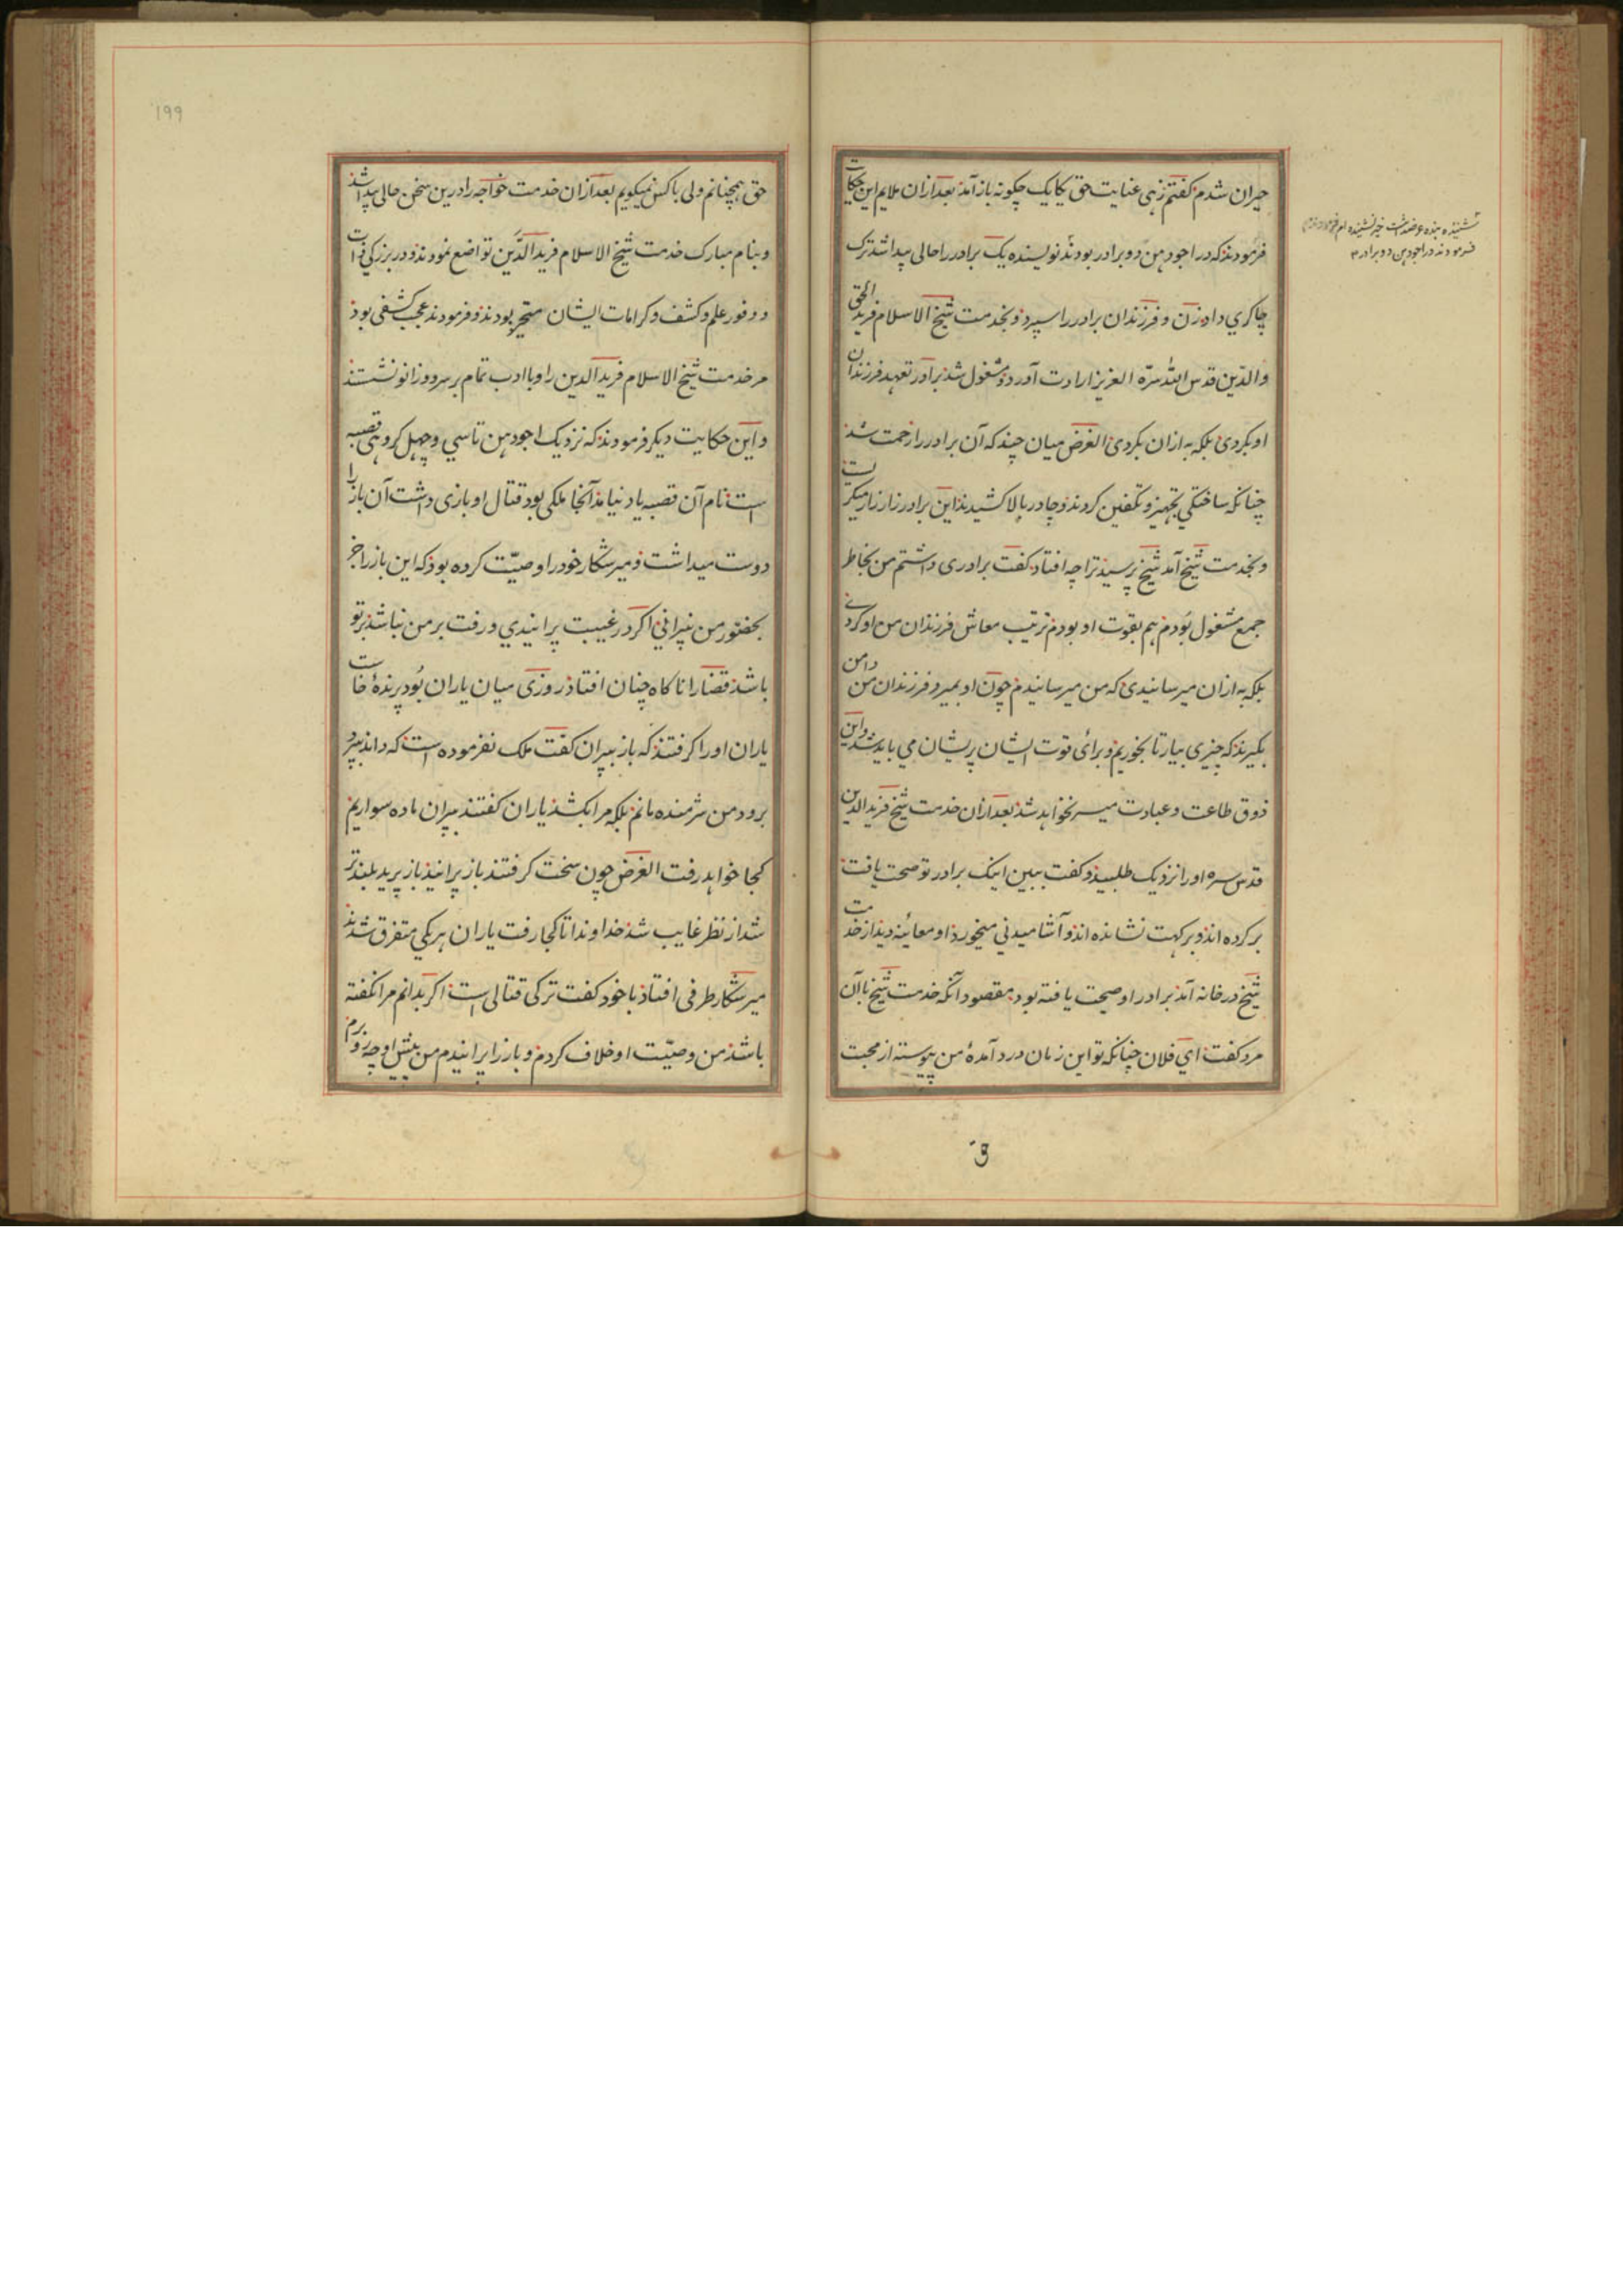 حیران شدم گفتم زهی عنایت حق یکایک چگونه باز آمد بعد ازان ملایم این حکایت
فرمودند که در اجودهن دو برادر بودند نویسنده یک برادر را حالی پیدا شد ترک
چاکری داد زن و فرزندان برادر را سپرد و بخدمت شیخ الاسلام فرید الحق
والدّین قدس اللّٰه سرّه العزیز ارادت آورد و مشغول شد برادر تعهد فرزندان
او بکردی بلکه به ازان بکردی الغرض میان چند که آن برادر را زحمت شد
چنانکه ساختگی تجهیز و تکفین کردند و چادر بالا کشیدند این برادر زار زار میگریست
و بخدمت شیخ آمد شیخ پرسید ترا چه افتاد گفت برادری داشتم من بخاطر
جمع مشغول بودم هم بقوت او بودم ترتیب معاش فرزندان من او کردی
بلکه به ازان میرسانیدی که من میرسانیدم چون او بمیرد فرزندان من دامن
بگیرند که چیزی بیار تا بخوریم و برای قوت ایشان پریشان می باید شد و این
ذوق طاعت و عبادت میسر نخواهد شد بعد ازان خدمت شیخ فرید الدین
قدس سره او را نزدیک طلبید و گفت ببین اینک برادر تو صحت یافت
بر کرده اند و بر کهت نشانده اند و آشامیدنی میخورد او معاینه دید از خدمت
شیخ در خانه آمد برادر او صحت یافته بود مقصود آنکه خدمت شیخ با آن
مرد گفت ای فلان چنانکه تو این زمان درد آمدهٔ من پیوسته از محبت
شنیده بنده عرضداشت خیر نشنیده ام
فرمودند در اجودهن دو برادر
۱۹۹
حق همچنانم ولی با کس نمیگویم بعد ازان خدمت خواجه را درین سخن حالی پیدا شد
و بنام مبارک خدمت شیخ الاسلام فرید الدّین تواضع نمودند و در بزرگی ذات
و وفور علم و کشف و کرامات ایشان متحیر بودند و فرمودند عجب کشفی بود
مر خدمت شیخ الاسلام فرید الدین را و با ادب تمام بر سر دو زانو نشستند
و این حکایت دیگر فرمودند که نزدیک اجودهن تا سی و چهل کروهی قصبه
است نام آن قصبه یاد نیامد آنجا ملکی بود قتال او بازی داشت آن باز را
دوست میداشت و میر شکار خود را وصیّت کرده بود که این باز را جز
بحضور من نپرانی اگر در غیبت پرانیدی و رفت بر من نباشد بر تو
باشد قضا را ناگاه چنان افتاد روزی میان یاران بود پرندهٔ خاست
یاران او را گرفتند که باز بپران گفت ملک نفرموده است که داند بپرد
برود من شرمنده مانم بلکه مرا بکشد یاران گفتند بپران ما ده سواریم
کجا خواهد رفت الغرض چون سخت گرفتند باز پرانید باز پرید بلندتر
شد از نظر غایب شد خداوند انا کجا رفت یاران هر یکی متفرق شدند
میر شکار طرفی افتاد با خود گفت ترکی قتالی است اگر بدانم مرا نکفته
باشد من وصیّت او خلاف کردم و باز را پرانیدم من پیش او چه رو برم